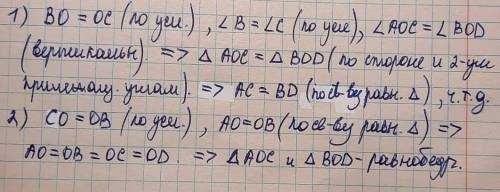 1) BO = OC (по усл.), ∠B = ∠C (по усл), ∠AOC = ∠BOD
(вертикальн). => △ AOC = △ BOD (по стороне и 2-ум
прилежащ. углам). => AC = BD (по св-ву равн. △), ч.т.д.
2) CO = OB (по усл.), AO = OB (по св-ву равн. △) =>
AO = OB = OC = OD. => △AOC и △BOD - равнобедр.